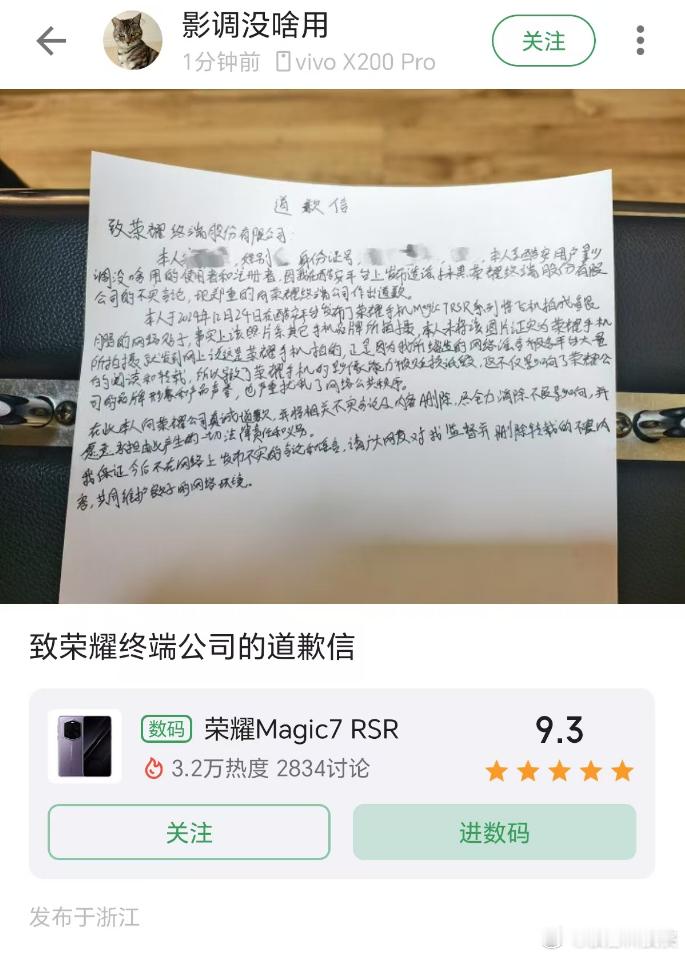 影调没啥用
1分钟前 vivo X200 Pro
关注
道歉信
致荣耀终端股份有限公司:
本人 性别 身份证号 , 本人系酷安用户影
调没啥用的使用者和注册者,因我在酷安平台上发布造谣抹黑荣耀终端股份有限
公司的不实言论,现郑重的向荣耀终端公司作出道歉。
本人于2024年12月24日在酷安平台发布了荣耀手机Magic7RSR系列将飞机拍成
的网络帖子,事实上该照片系其它手机品牌所拍摄,本人未将该图片证实为荣耀手机
所拍摄就发到网上说这是荣耀手机拍的,正是因为我所编造的网络谣言被各平台大量
的阅读和转载,所以导致了荣耀手机的影像能力被贬损诋毁,这不仅影响了荣耀公
司的品牌形象和产品声誉,也严重扰乱了网络公共秩序。
在此本人向荣耀公司真诚道歉,并将相关不实言论及内容删除,尽全力消除不良影响,并
愿意承担由此产生的一切法律责任和义务。
我保证今后不在网络上发布不实的言论和谣言,请广大网友对我监督并删除转载的不实内
容,共同维护良好的网络环境。
致荣耀终端公司的道歉信
数码 荣耀Magic7 RSR
9.3
3.2万热度 2834讨论
关注
进数码
发布于浙江